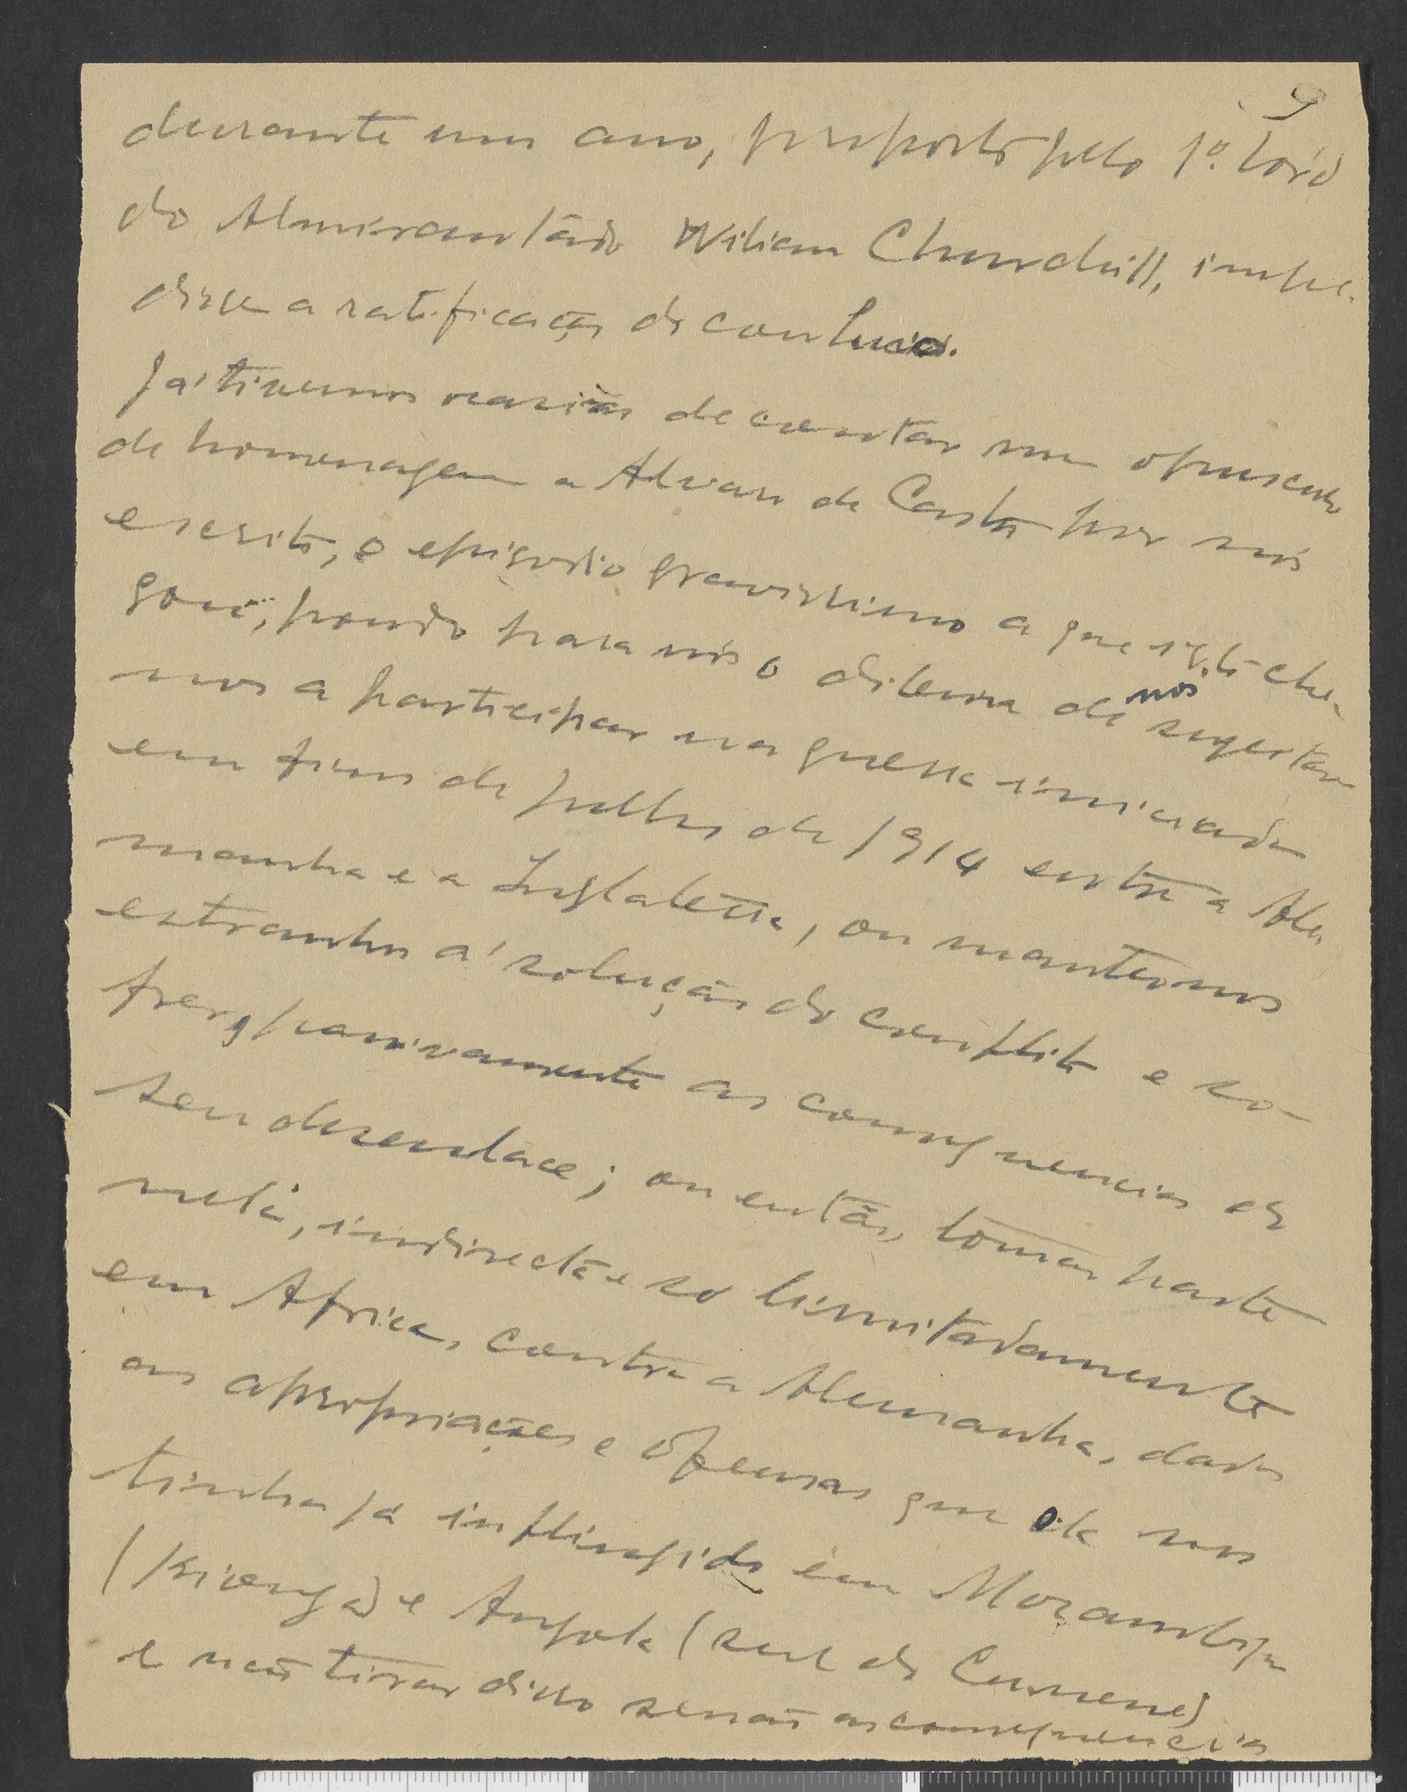 9
durante um ano, proposto pelo 1º. Lord
do Almirantádo Wiliam Churchill, impe-
disse a ratificação do conluio.
Já tivemos ocasião de contar num opusculo
de homenagem a Alvaro de Castro por nós
escrito, o episodio gravissimo a que isto che-
gou, pondo para nós o dilema de nós sugeitar
mos a participar na guerra iniciada
em fins de Julho de 1914 entre a Ale
manha e a Inglaterra, ou mantermos
extranhos á solução do conflito e so-
frer, passivamente as consequencias do
seu desenlace; ou então, tomar parte
nela, indirecta e só limitadamente
em Africa, contra a Alemanha, dadas
as apropriações e ofensas que ela nos
tinha já inflingido em Mozambique
(Kionga) e Angola (sul do Cunene)
e não tirar disso senão as consequencias